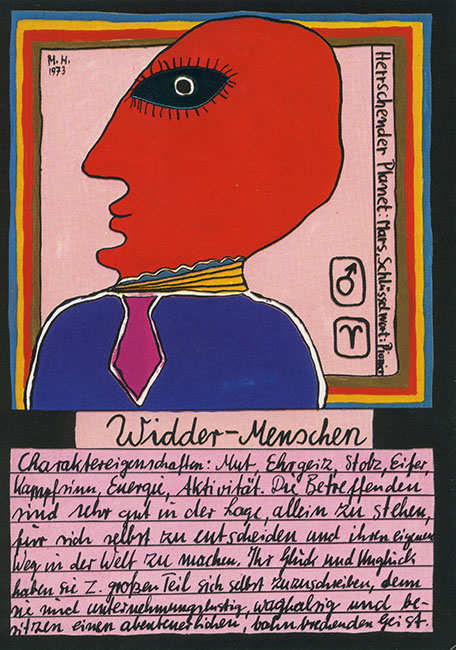 M.H.
1973
Herrschender Planet: Mars, Schlüsselwort: Pionier
♂
♈
Widder-Menschen
Charaktereigenschaften: Mut, Ehrgeiz, Stolz, Eifer,
Kampfsinn, Energie, Aktivität. Die Betreffenden
sind sehr gut in der Lage, allein zu stehen,
für sich selbst zu entscheiden und ihren eigenen
Weg in der Welt zu machen. Ihr Glück und Unglück
haben sie z. großen Teil sich selbst zuzuschreiben, denn
sie sind unternehmungslustig, waghalsig und be-
sitzen einen abenteuerlichen, bahnbrechenden Geist.